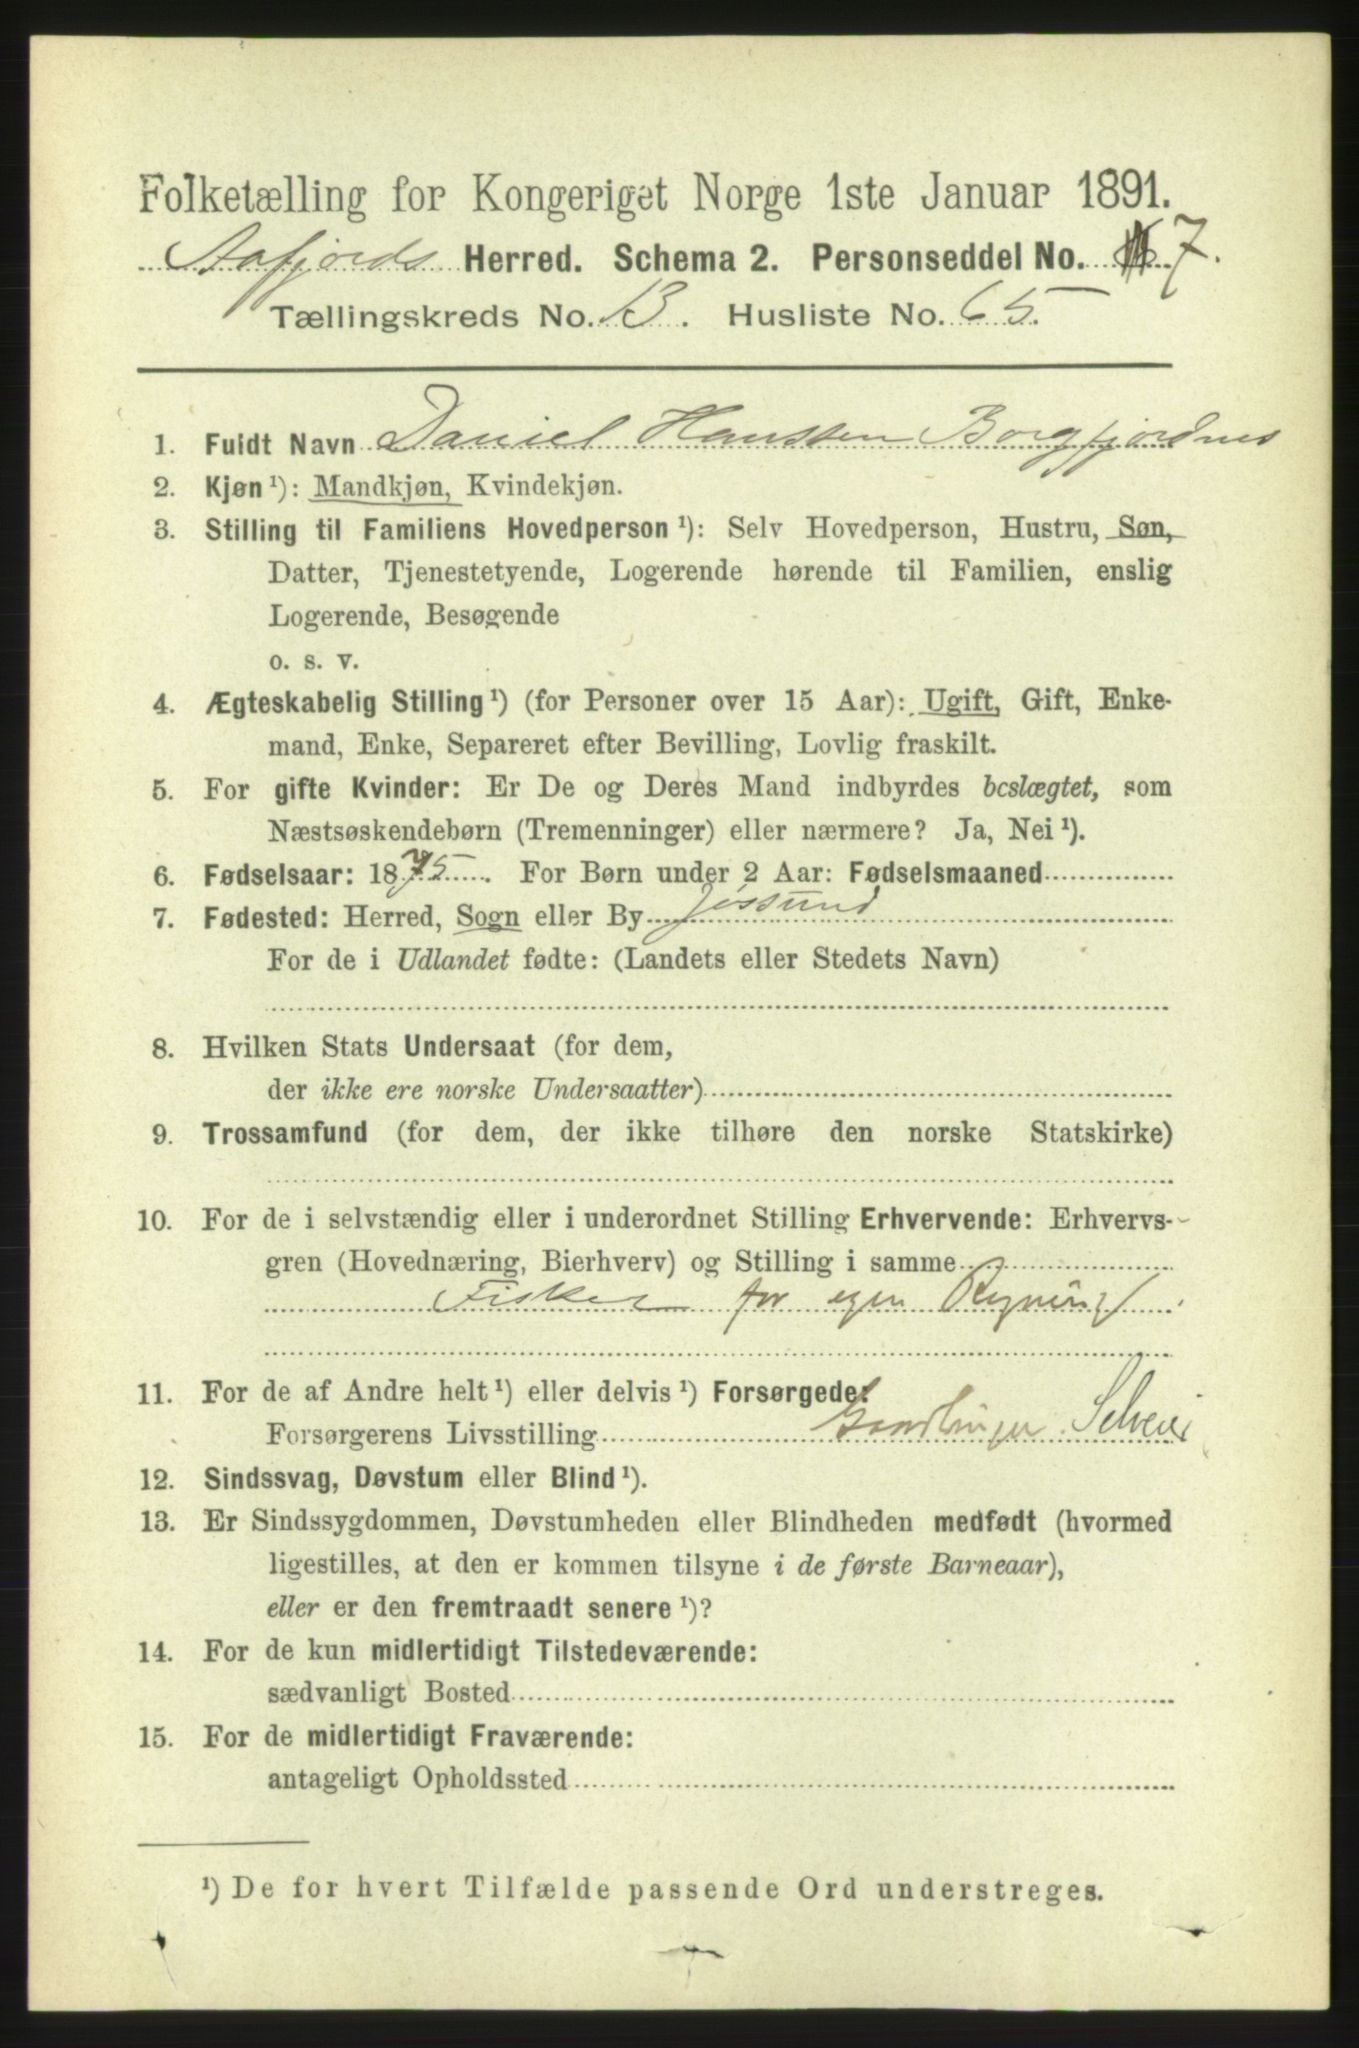 Folketælling for Kongeriget Norge 1ste Januar 1891.
Aafjords Herred. Schema 2. Personseddel No. 7.
Tællingskreds No. 13. Husliste No. 65.
1. Fuldt Navn Daniel Hanssen Borgfjordnes
2. Kjøn ¹): Mandkjøn, Kvindekjøn.
3. Stilling til Familiens Hovedperson ¹): Selv Hovedperson, Hustru, Søn,
Datter, Tjenestetyende, Logerende hørende til Familien, enslig
Logerende, Besøgende
o. s. v.
4. Ægteskabelig Stilling ¹) (for Personer over 15 Aar): Ugift, Gift, Enke-
mand, Enke, Separeret efter Bevilling, Lovlig fraskilt.
5. For gifte Kvinder: Er De og Deres Mand indbyrdes beslægtet, som
Næstsøskendebørn (Tremenninger) eller nærmere? Ja, Nei ¹).
6. Fødselsaar: 1875. For Børn under 2 Aar: Fødselsmaaned
7. Fødested: Herred, Sogn eller By Jøssund
For de i Udlandet fødte: (Landets eller Stedets Navn)
8. Hvilken Stats Undersaat (for dem,
der ikke ere norske Undersaatter)
9. Trossamfund (for dem, der ikke tilhøre den norske Statskirke)
10. For de i selvstændig eller i underordnet Stilling Erhvervende: Erhvervs-
gren (Hovednæring, Bierhverv) og Stilling i samme
Fisker for egen Regning
11. For de af Andre helt ¹) eller delvis ¹) Forsørgede:
Forsørgerens Livsstilling Gaardbruger Selveier
12. Sindssvag, Døvstum eller Blind ¹).
13. Er Sindssygdommen, Døvstumheden eller Blindheden medfødt (hvormed
ligestilles, at den er kommen tilsyne i de første Barneaar),
eller er den fremtraadt senere ¹)?
14. For de kun midlertidigt Tilstedeværende:
sædvanligt Bosted
15. For de midlertidigt Fraværende:
antageligt Opholdssted
¹) De for hvert Tilfælde passende Ord understreges.